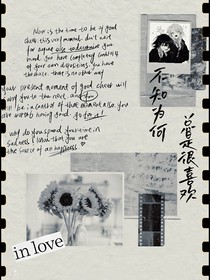 Now is the time to be of good
cheer, this very moment. Don't wait
for anyone else to determine your
mood. You have complete control
of your own disposition. You have
the choice. There is no other way
present moment of good cheer will
to the next, and you
be in control of that moment also. You
are worth being good to yourself.
why do you spend your time in
sadness when you are
the source of all happiness
不知为何
总是很喜欢
in love